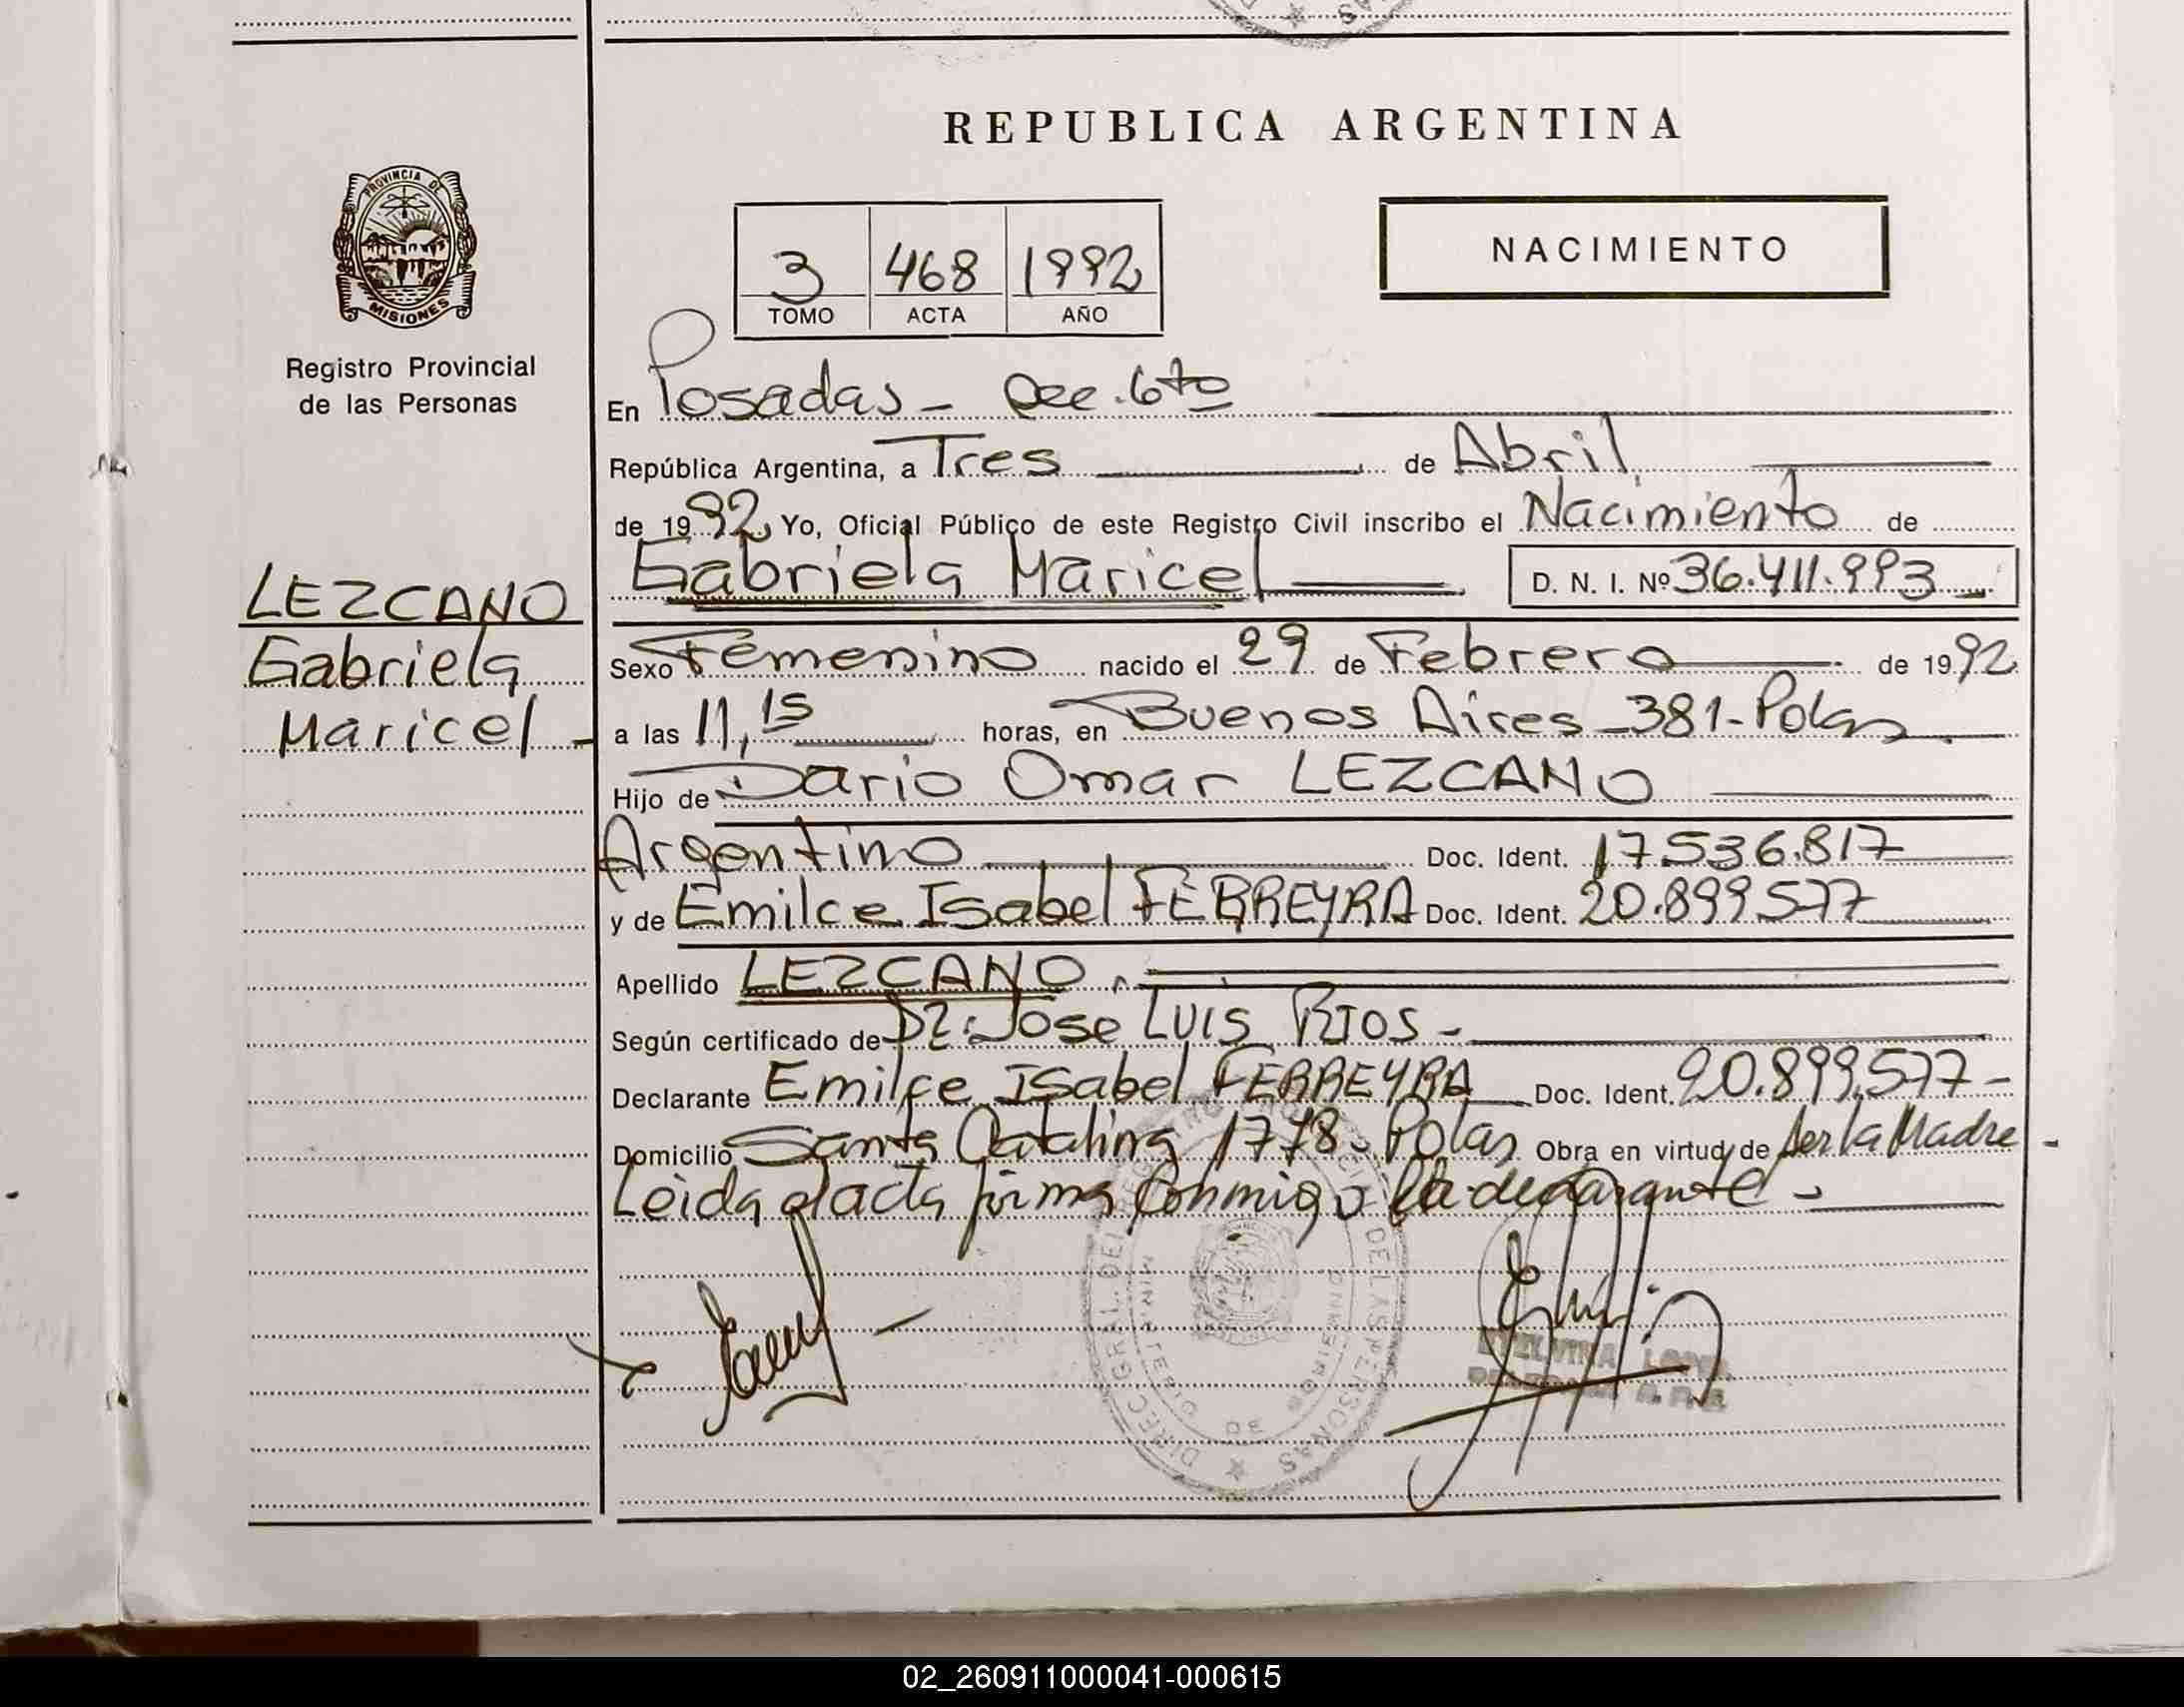 REPUBLICA ARGENTINA
PROVINCIA DE
MISIONES
Registro Provincial
de las Personas
3 468 1992
TOMO ACTA AÑO
NACIMIENTO
En Posadas - Sec. 6to
República Argentina, a Tres de Abril
de 1992, Yo, Oficial Público de este Registro Civil inscribo el Nacimiento de
Gabriela Maricel D. N. I. Nº 36.411.993
LEZCANO
Gabriela
Maricel -
Sexo Femenino nacido el 29 de Febrero de 1992
a las 11,15 horas, en Buenos Aires - 381 - Pdas
Hijo de Dario Omar LEZCANO
Argentino Doc. Ident. 17.536.817
y de Emilce Isabel FERREYRA Doc. Ident. 20.899.577
Apellido LEZCANO
Según certificado de Dr. Jose Luis RIOS -
Declarante Emilce Isabel FERREYRA Doc. Ident. 20.899.577 -
Domicilio Santa Catalina 1778 - Pdas Obra en virtud de ser la Madre -
Leida el acta firma conmigo la declarante -
DIREC. GRAL. DEL REGISTRO PROVINCIAL DE LAS PERSONAS
MINISTERIO DE GOBIERNO
02_260911000041-000615